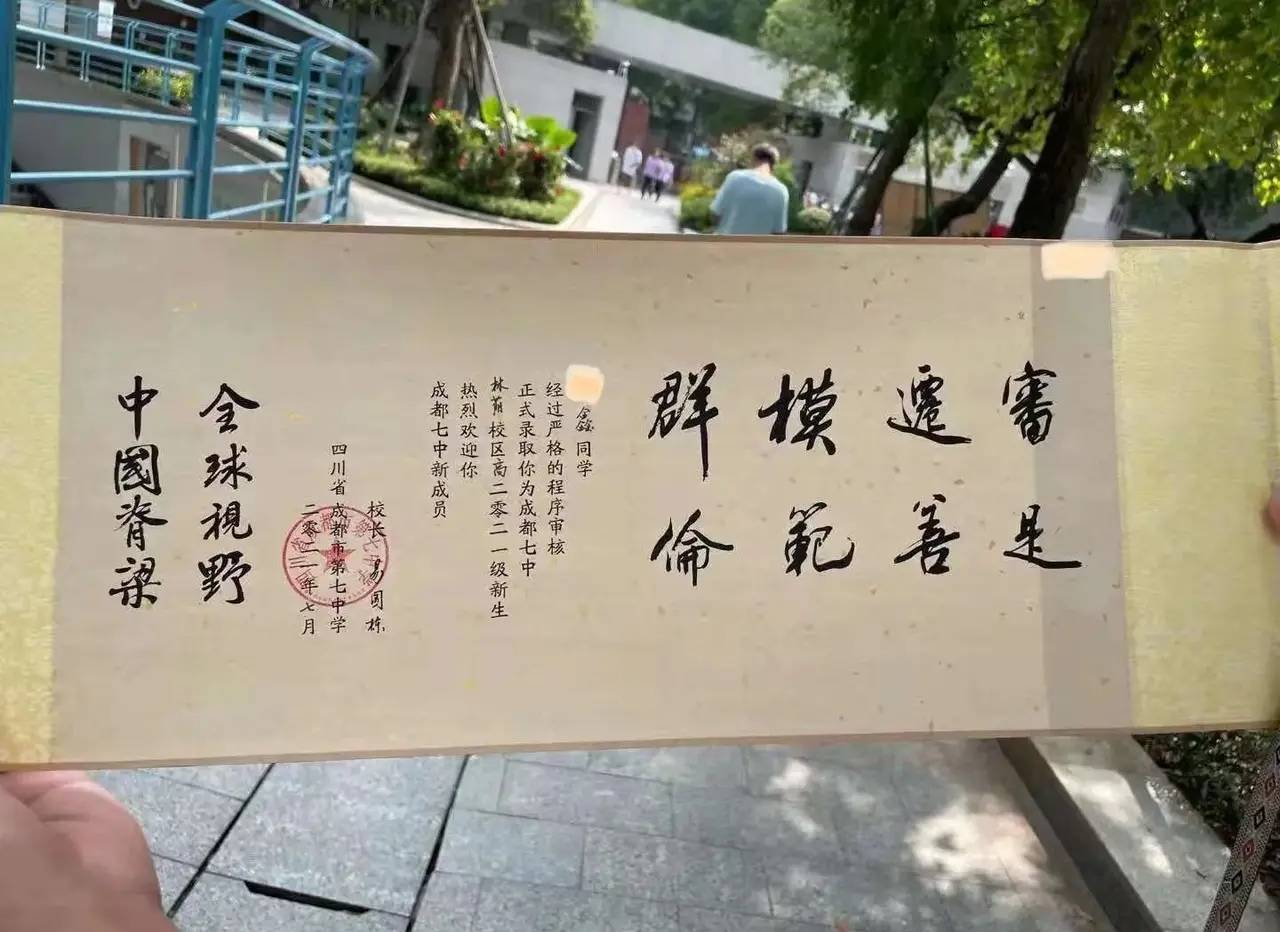 審是
遷善
模範
群倫
鑫同学
经过严格的程序审核
正式录取你为成都七中
林荫校区高二零二一级新生
热烈欢迎你
成都七中新成员
校长 易国栋
四川省成都市第七中学
二零二一年七月
全球視野
中國脊梁